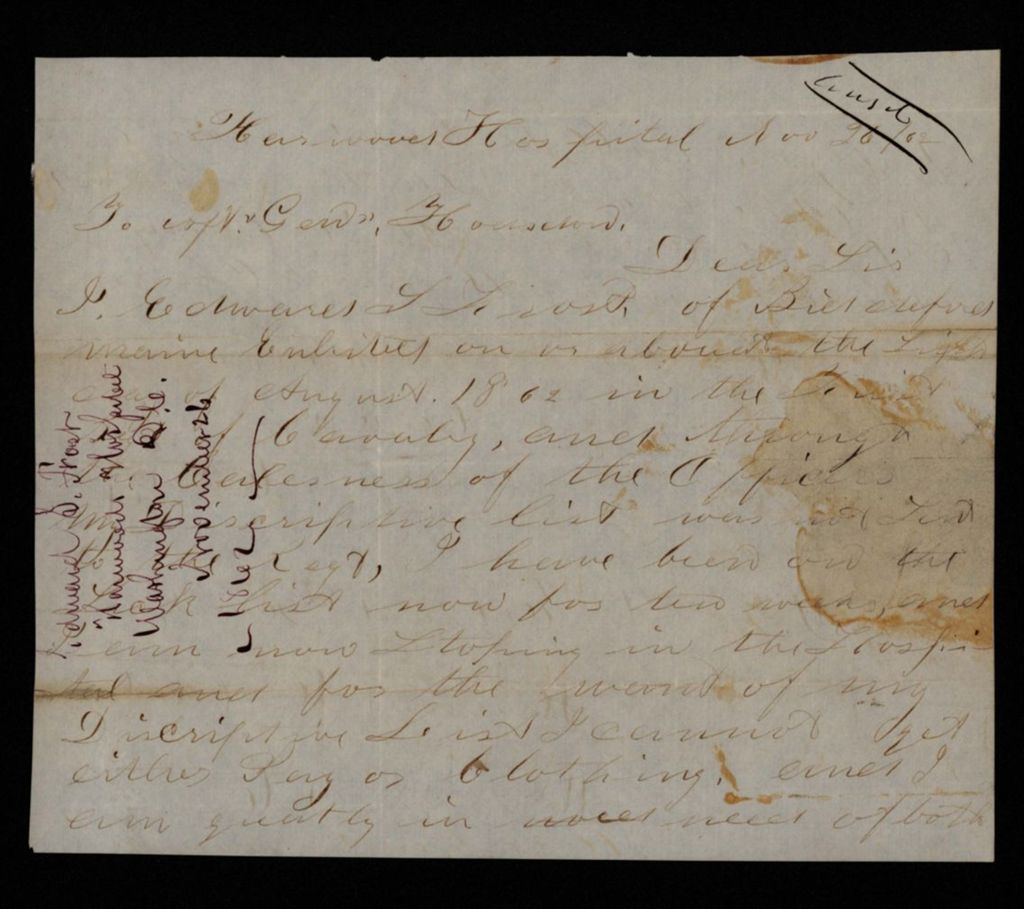 Ansd
Harwood Hospital Nov 26/62
To Genr, Hodsdon.
Dear Sir
I. Edward S Frost, of Biddeford
Maine Enlisted on or about the
day of August. 1862 in the First
Cavalry, and through
the Calesness of the Offices
my Discriptive list was not Sent
to the Regt, I have been on the
Sick list now for ten weeks, and
am now Stoping in the Hospi-
tal and for the want of my
Discriptive List I cannot get
either Pay or Clothing, and I
am greatly in need of both
Edward S. Frost
Harwood Hospital
Washington
November 26
1862